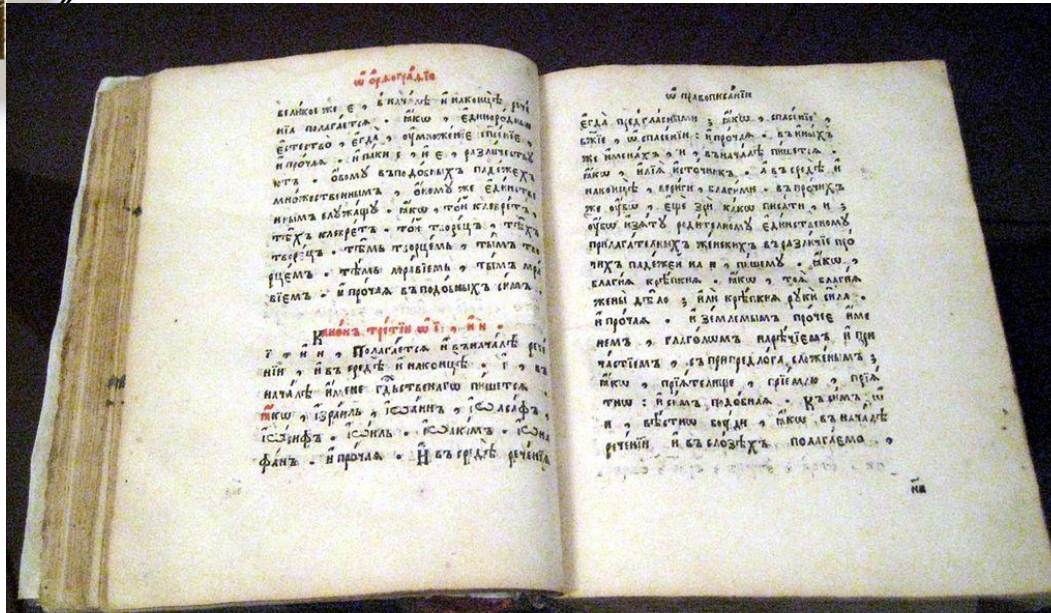 ѡ҆ ѻ҆рѳогра́фїи
вели́кое же є , в нача́лѣ и҆ наконцѣ̀ рече
нїѧ полага́етсѧ . ꙗ҆́кѡ , є҆диноро́дный
є҆стество̀ , є҆гда̀ , оу҆множе́нїе спасе́нїе ,
и҆ про́чаѧ . и҆ па́ки є , и҆ е , разли́чествꙋ
ютъ . ѻ҆́вомꙋ въподо́бныхъ паде́жехъ
мно́жественнымъ , ѻ҆́номꙋ же є҆ди́нстве
ннымъ слꙋжа́щꙋ . ꙗ҆́кѡ , то́й клевре́тъ ,
тѣ́хъ клевре́тъ . то́й творе́цъ , тѣ́хъ
творе́цъ . тѣ́мь творце́мь , ты́мъ тво
рце́мъ . тѣ́мь мра́вїемь , ты́мъ мра́
вїемъ . и҆ про́чаѧ въподо́бныхъ си́мъ .
Кано́нъ тре́тїй ѡ҆ ї , и҆ и .
ї , и҆ и , Полага́етсѧ и҆ въ нача́лѣ рече́
нїй , и҆ въ среде́ и҆ наконцѣ̀ . ї , въ
нача́лѣ и҆́мене гдⷭ҇ьственагѡ пи́шетсѧ
ꙗ҆́кѡ , і҆зра́иль , і҆ѡа́ннъ , і҆ѡаса́фъ ,
і҆ѡ́сифъ . і҆ѡи́ль . і҆ѡаки́мъ . і҆ѡна
ѳа́нъ . и҆ про́чаѧ . И҆ въ среде́ рече́нїѧ
ѡ҆ правописа́нїи
є҆гда̀ пред̾гла́сными ; ꙗ҆́кѡ , спасе́нїе ,
бж҃їе , ѡ҆ спасе́нїи : и҆ про́чаѧ . въ и҆ны́хъ
же и҆мена́хъ , и , въ нача́лѣ пи́шетсѧ .
ꙗ҆́кѡ , и҆лїѧ̀ и҆сто́чникъ . а҆ въ среде́ и҆
наконцѣ̀ , вери́ги , благи́ми . въ про́чихъ
же оу҆́бѡ , є҆щѐ зрѝ ка́кѡ писа́ти , и ;
оу҆́бѡ и҆з̾ѧ́тꙋ роди́телномꙋ є҆ди́нственомꙋ
прилага́телныхъ же́нскихъ въ разли́чїе про́
чихъ паде́жей на и , пи́шемꙋ . ꙗ҆́кѡ ,
благи́ѧ крѣ́пкиѧ . ꙗ҆́кѡ , тоѧ̀ благи́ѧ
жены̀ дѣ́ло ; и҆лѝ крѣ́пкиѧ рꙋкѝ си́ла .
и҆ про́чаѧ . и҆ зе́млемымъ про́чее и҆ме
немъ , глаго́лѡмъ нарѣ́чїемъ , и҆ при
ча́стїемъ , съ при предло́га сложе́нымъ ;
ꙗ҆́кѡ , прїѧ́телище , прїе́млю , прїѧ́
тнѡ : и҆ си́мъ подо́бнаѧ . Къ си́мъ ѡ҆
и , вѣ́стно бꙋ́ди , ꙗ҆́кѡ въ нача́лѣ
рече́нїй и҆ въ сло́зѣхъ полага́ема ,